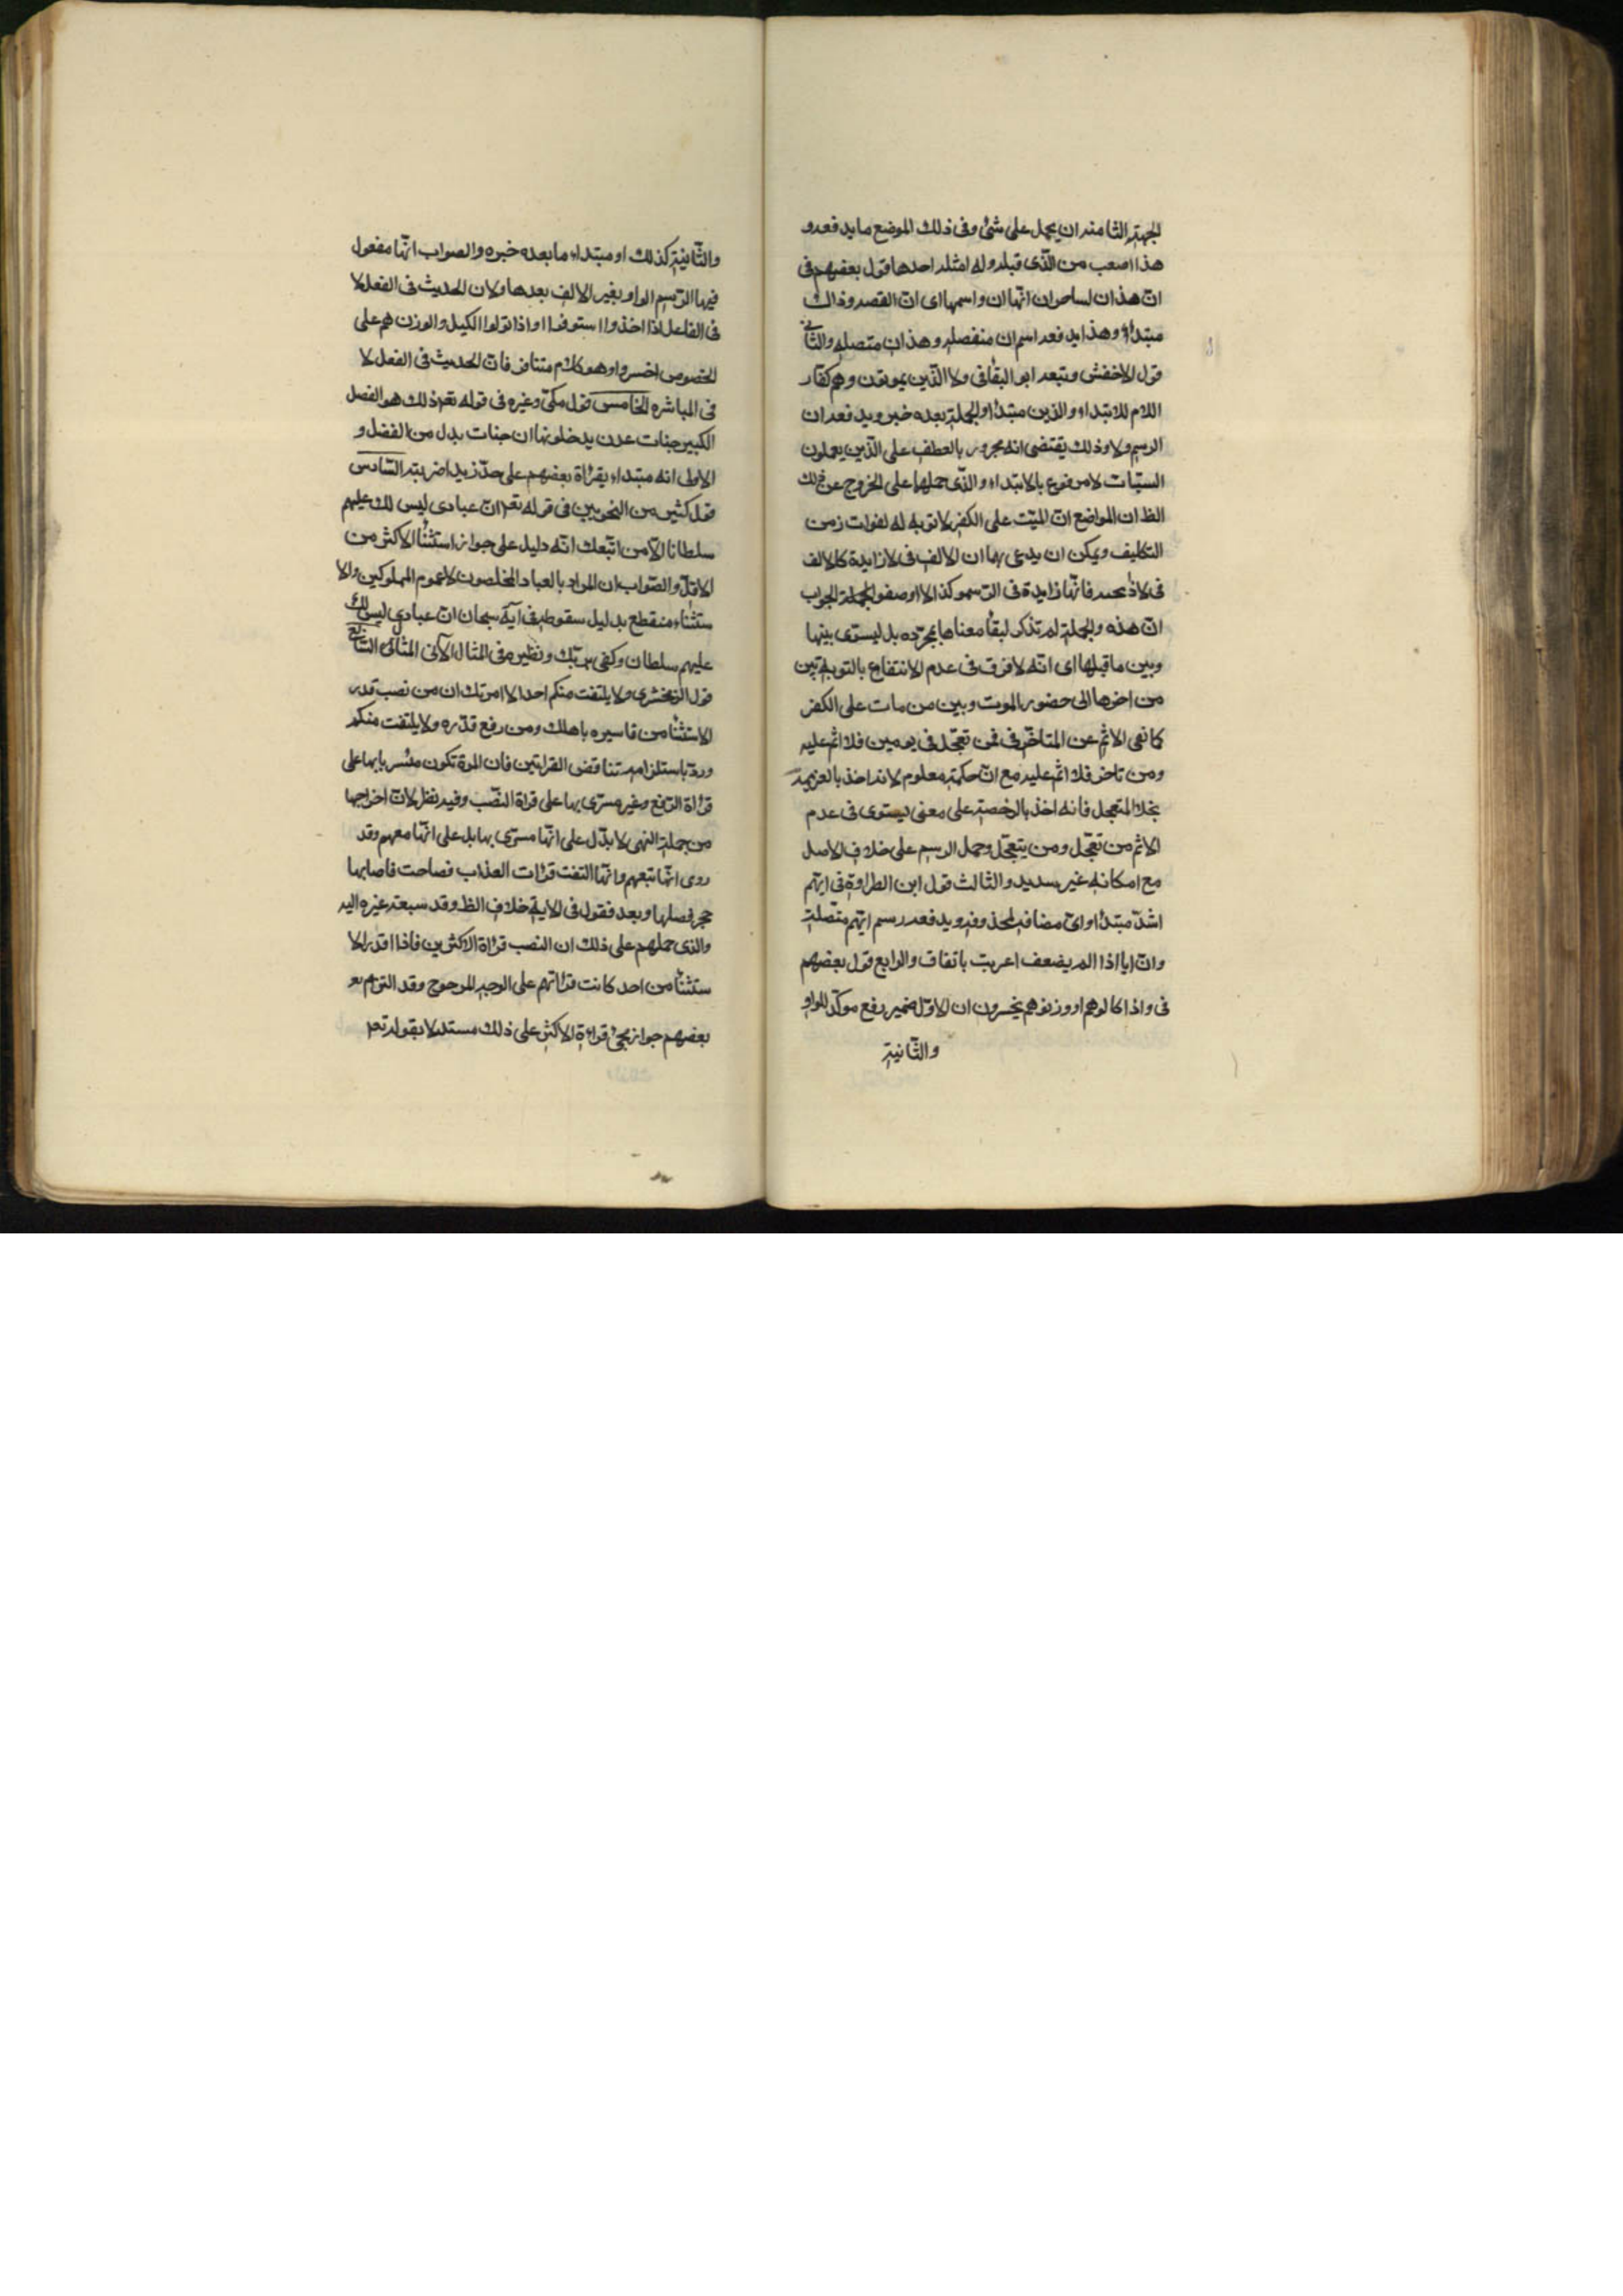 الجهة الثامنه ان يحمل على شئ وفى ذلك الموضع ما يدفعه و
هذا اصعب من الذى قبله وله امثله احدها قول بعضهم فى
انّ هذان لساحران انّها ان واسمها اى انّ القصه وذان
مبتدأ وهذا يدفعه رسم ان منفصله وهذان متصله والثانى
قول الاخفش وتبعه ابو البقأ فى ولا الّذين يموتون وهم كفّار
اللام للابتداء والذين مبتدأ والجملة بعده خبر ويدفعه ان
الرسم ولا وذلك يقتضى انه مجرور بالعطف على الذين يعملون
السيّات لا مرفوع بالابتداء والذّى حملهما على الخروج عن ذلك
الظ ان المواضع انّ الميّت على الكفر لا توبه له لفوات زمن
التكليف ويمكن ان يدعى بهما ان الالف فى لا زايدة كالالف
فى لاذبحنه فانّها زايدة فى الرسم وكذا لا اوضعوا الجملة الجواب
انّ هذه والجملة لم تذكر لبقأ معناها بمجرّده بل ليسترى بينها
وبين ما قبلها اى انّه لا فرق فى عدم الانتفاع بالتوبة بين
من اخرها الى حضور الموت وبين من مات على الكفر
كما نفى الاثم عن المتاخّر فى فمن تعجّل فى يومين فلا اثم عليه
ومن تاخر فلا اثم عليه مع انّ حكمه معلوم لانه اخذ بالعزيمة
بخلا المتعجل فانه اخذ بالرخصة على معنى يستوى فى عدم
الاثم من تعجّل ومن يتعجّل وحمل الرسم على خلاف الاصل
مع امكانه غير سديد والثالث قول ابن الطراوة فى ايّهم
اشدّ مبتدأ واى مضافه لمحذوف ويدفعه رسم ايّهم متّصلة
وانّ ايا اذا لم يضعف اعربت باتفاق والرابع قول بعضهم
فى واذا كالوهم او وزنوهم يخسرون ان الاوّل ضمير رفع موكّد للواو
والثّانية
والثّانية كذلك او مبتداء ما بعده خبره والصواب انّها مفعول
فيها الرّسم الواو بغير الالف بعدها ولان الحديث فى الفعل لا
فى الفاعل اذا اخذوا استوفوا واذا تولوا الكيل والوزن هم على
الخصوص اخسروا وهو كلام متنافر فانّ الحديث فى الفعل لا
فى المباشره الخامس قول مكىّ وغيره فى قوله تعم ذلك هو الفضل
الكبير جنات عدن يدخلونها ان جنات بدل من الفضل و
الاولى انه مبتداء بقرأة بعضهم على حدّ زيدا ضربته السّادس
قول كثير من النحويين فى قوله تعم انّ عبادى ليس لك عليهم
سلطانا الّا من اتّبعك انّه دليل على جواز استثنأ الاكثر من
الاقل والصّواب ان المراد بالعباد المخلصون لا عموم المملوكين والا
ستثناء منقطع بدليل سقوطه فى آية سبحان انّ عبادى ليس لك
عليهم سلطان وكفى بربّك ونظيره فى المثال الآتى المثال السّابع
قول الزمخشرى ولا يلتفت منكم احد الا امرتك ان من نصب قدر
الاستثنأ من فاسيره باهلك ومن رفع قدّره ولا يلتفت منكم
وردّ باستلزامه تناقض القرائتين فان المرة تكون مسّر بابها على
قرأة الرّفع وغير مسرّى بها على قرأة النصّب وفيه نظر لانّ اخراجها
من جملة النهى لا يدّل على انّها مسرّى بها بل على انّها معهم وقد
روى انّها تبعهم وانّها التفت قرأت العذاب فصاحت فاصابها
حجر فصلها وبعد فقول فى الاية خلاف الظ وقد سبعه غيره اليه
والذى حملهم على ذلك ان النصب قرأة الاكثرين فاذا قدر الا
ستثنأ من احد كانت قرأتهم على الوجه المرجوح وقد التزم بعـ
بعضهم جواز مجئ قرأة الاكثر على ذلك مستدلا بقوله تعم